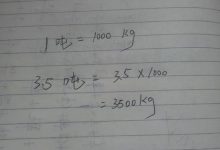 1 吨 = 1000 kg
3.5 吨 = 3.5 × 1000
= 3500 kg